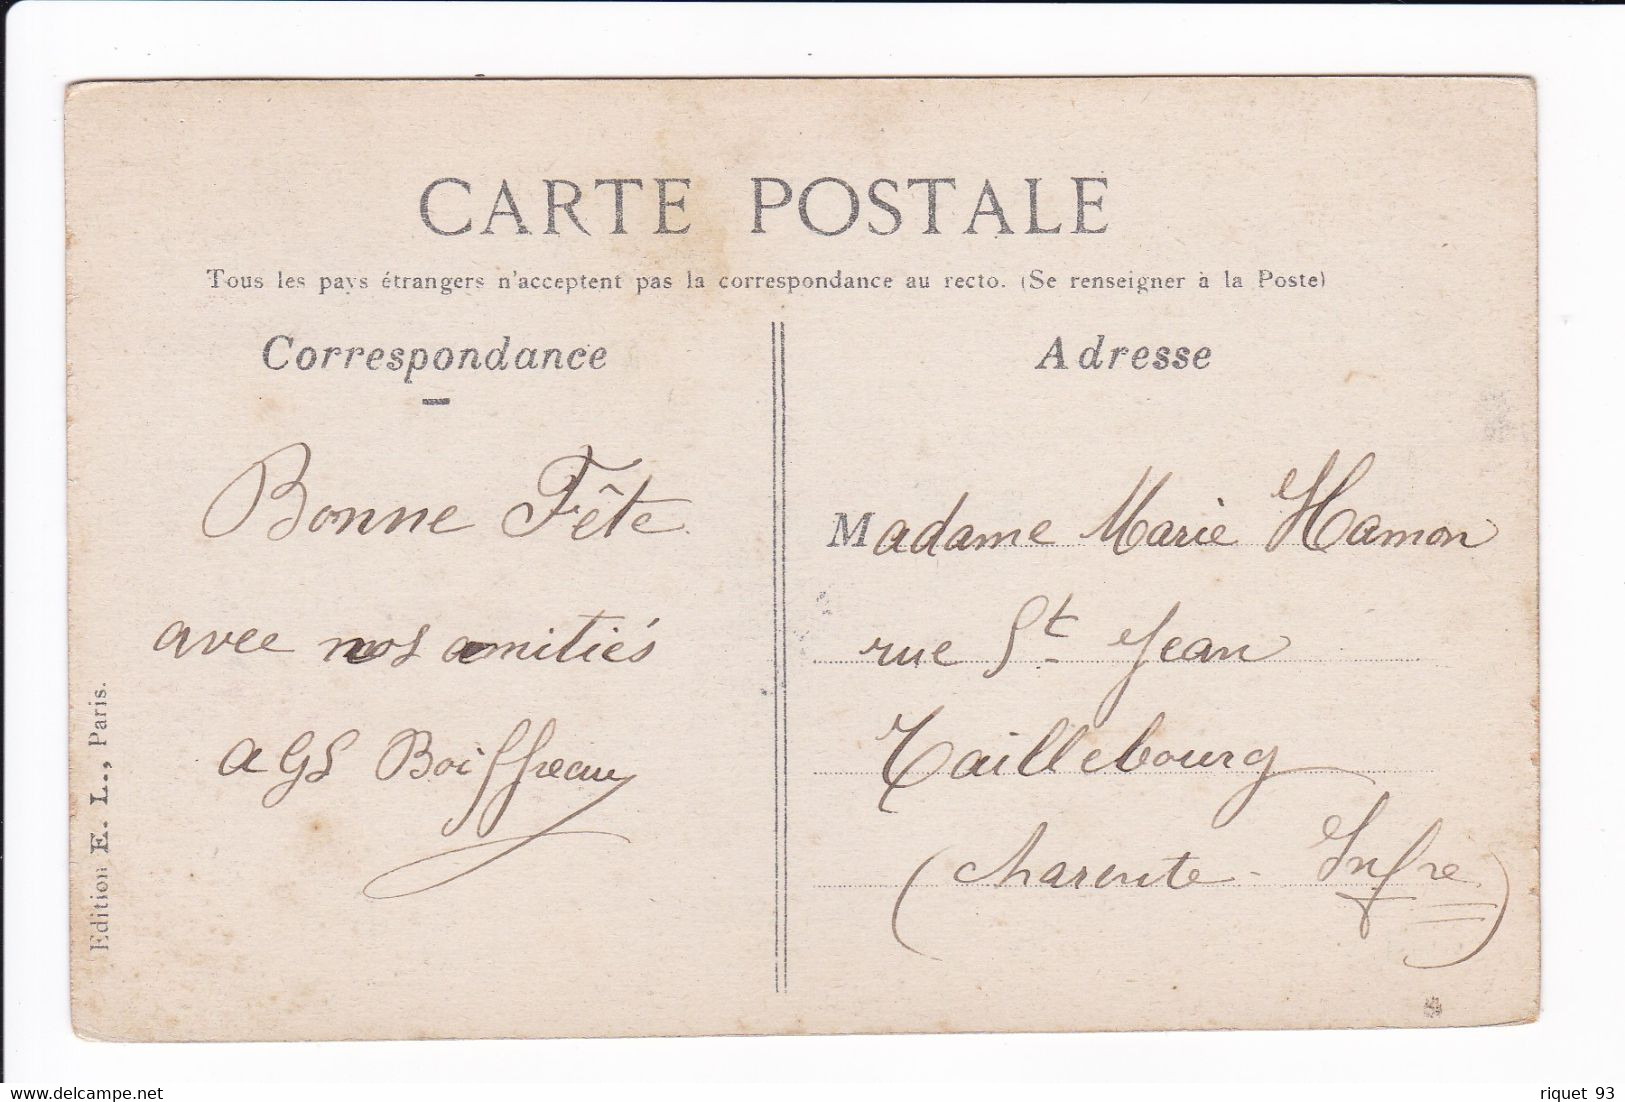 CARTE POSTALE
Tous les pays étrangers n'acceptent pas la correspondance au recto. (Se renseigner à la Poste)
Correspondance
Bonne Fête
avec nos amitiés
Boiffreau
Adresse
Madame Marie Hamon
rue St Jean
Taillebourg
(Charente-Infre)
Edition E. L., Paris.
delcampe.net
riquet 93